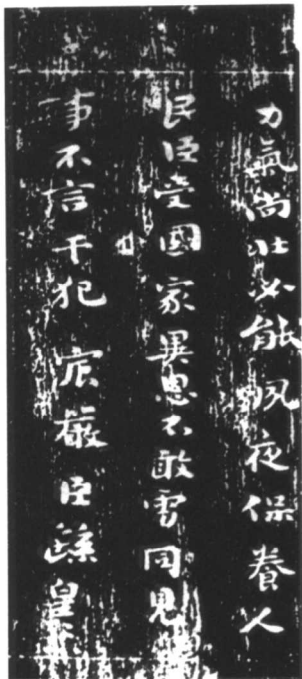 力氣尚壯必能夙夜保養人
民臣受國家異恩不敢雷同見
事不言干犯宸嚴臣繇皇